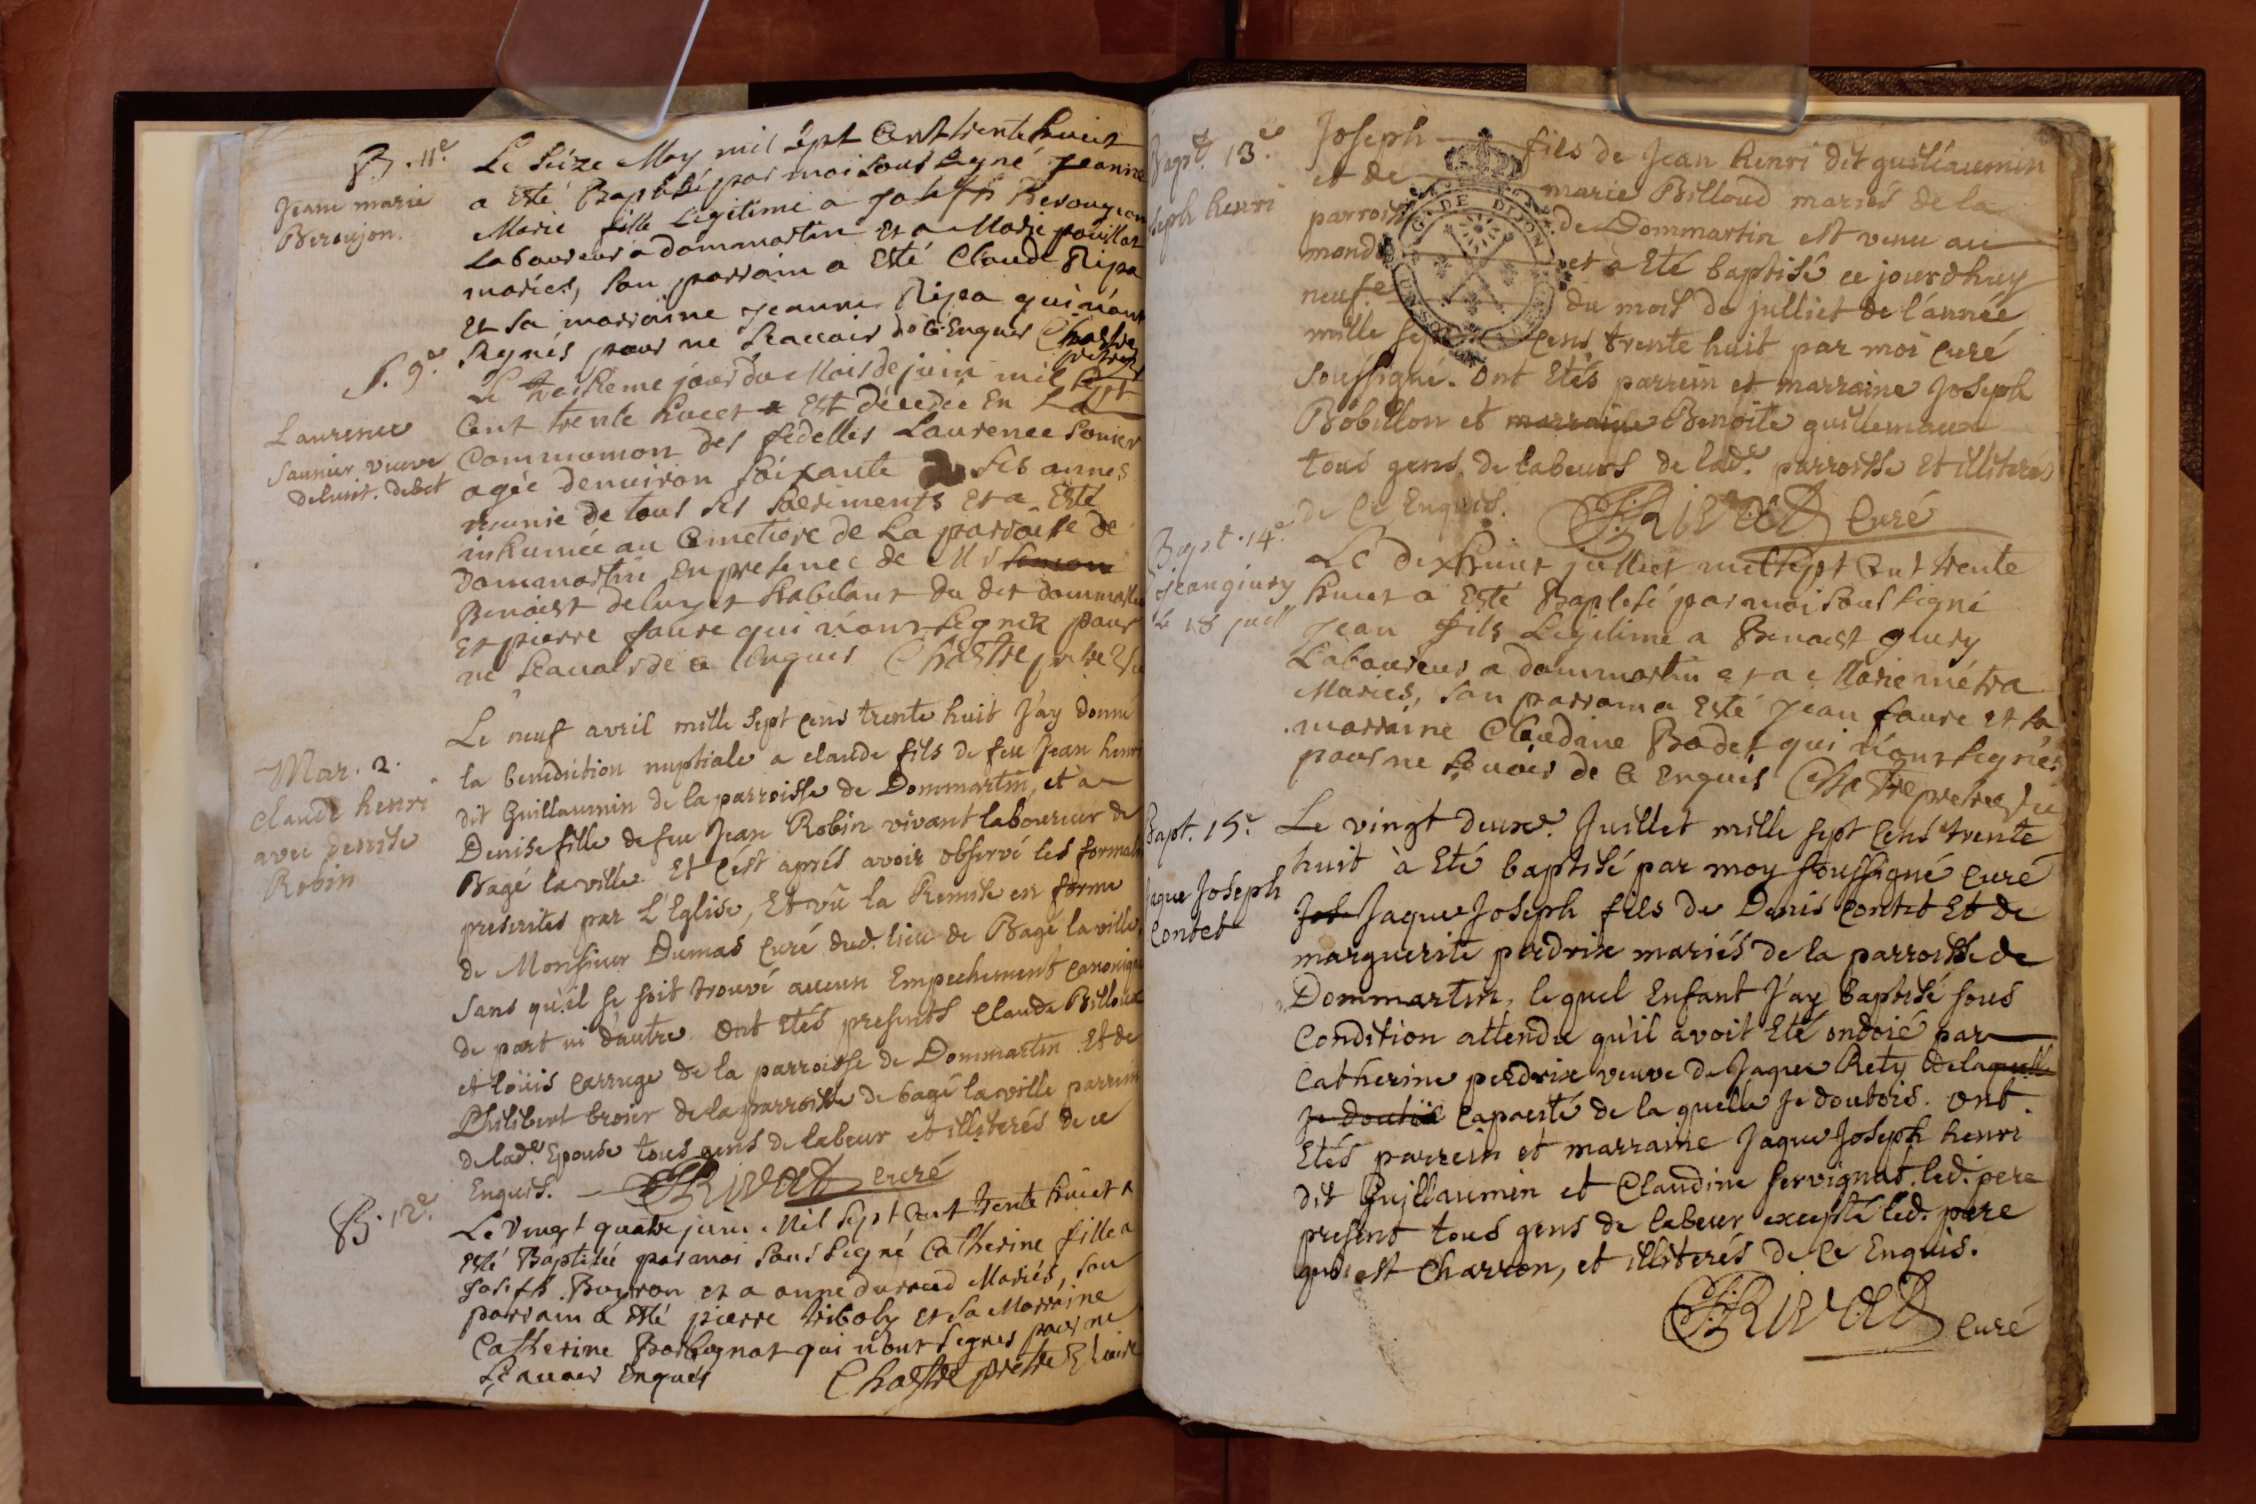 B. 11e.
Jeane marie
Beroujon.
Le Seize May mil sept Cent trente huict
a Esté Baptisé par moi sous signé Jeanne
Marie fille Legitime a Joseph
Laboureur a dommartin et a Marie pouillat
mariés, son parrain a Esté Claude Ripa
Et sa marraine Jeanne Ripea qui n'ont
signés pour ne scavoir de ce Enquis Chastre
S. 9e.
Laurence
Saunier veuve
Le troisieme jour du Mois de juin mil sept
Cent trente huict est décédée En La
Communion des fidelles Laurence Sonier
agée denviron soixante six annes
munie de tous ses sacrements et a Esté
inhumée au Cimetiere de La parroisse de
Dommartin En presence de
Benoist habitant du dit dommartin
Et pierre faure qui n'ont signez pour
ne scavoir de ce Enquis Chastre
Mar. 2.
claude henri
avec denise
Robin
Le neuf avril mille sept cens trente huit J'ay donné
la benediction nuptiale a claude fils de feu Jean henri
dit Guillaumin de la parroisse de Dommartin, et à
Denise fille de feu Jean Robin vivant laboureur de
Bagé la ville. Et c'est aprés avoir observé les formalit
prescrites par L'Eglise, Et vû la Remise en forme
de Monsieur Dumas Curé dud. lieu de Bagé la ville,
sans qu'il se soit trouvé aucun Empechement canonique
de part ni d'autre. Ont Etés presents Claude Billoud
et loüis carruge de la parroisse de Dommartin. Et de
Philibert broier de la parroisse de bagé la ville parrein
de lade. Epouse tous gens de labeur et illiterés de ce
Enquis. Rivat curé
B. 12e.
Le vingt quatre juin Mil sept Cent trente huict a
esté Baptisée par moi sous signé Catherine fille a
Joseph Buyron et a anne durand Mariés, son
parrain a esté pierre triboly et sa Marraine
Catherine qui n'ont signés pour ne
scavoir Enquis Chastre prestre Vicaire
Bapt. 13e.
seph henri
Joseph fils de Jean henri dit guilleaumin
et de marie Billoud mariés de la
parroisse de Dommartin est venu au
monde et à Eté baptisé ce jourd'huy
neufe du mois de julliet de l'année
mille sept cens trente huit par moi Curé
soussigné. Ont Etés parrein et marraine Joseph
Bobillon et marraine Benoite guillemaux
tous gens de labeurs de lade. parroisse Et illiterés
de ce Enquis. Rivat Curé
Bapt. 14e.
Jean giury
le 18 juill
Le dixhuict julliet mil sept Cent trente
huict a Esté Baptisé par moi sous signé
Jean fils Legitime a Benoist giury
Laboureur a dommartin et a Marie métra
Mariés, son parrain a Esté Jean faure et sa
marraine Claudine Bodet qui n'ont signés
pour ne scavoir de ce Enquis Chastre prestre
Bapt. 15e.
Jaque Joseph
Contet
Le vingt deuxe. Juillet mille sept cens trente
huit à Eté baptisé par moy soussigné Curé
Jos Jaque Joseph fils de Denis contet Et de
marguerite perdrix mariés de la parroisse de
Dommartin, lequel Enfant J'ay baptisé sous
Condition attendu qu'il avoit Eté ondoié par
Catherine perdrix veuve de Jaque Rety de laquelle
je doutois capacité de la quelle je doutois. Ont
Etés parrein et marraine Jaque Joseph henri
dit Guillaumin et Claudine servignat. led. pere
present tous gens de labeur excepté led. pere
qui est Charron, et illiterés de ce Enquis.
Rivat Curé